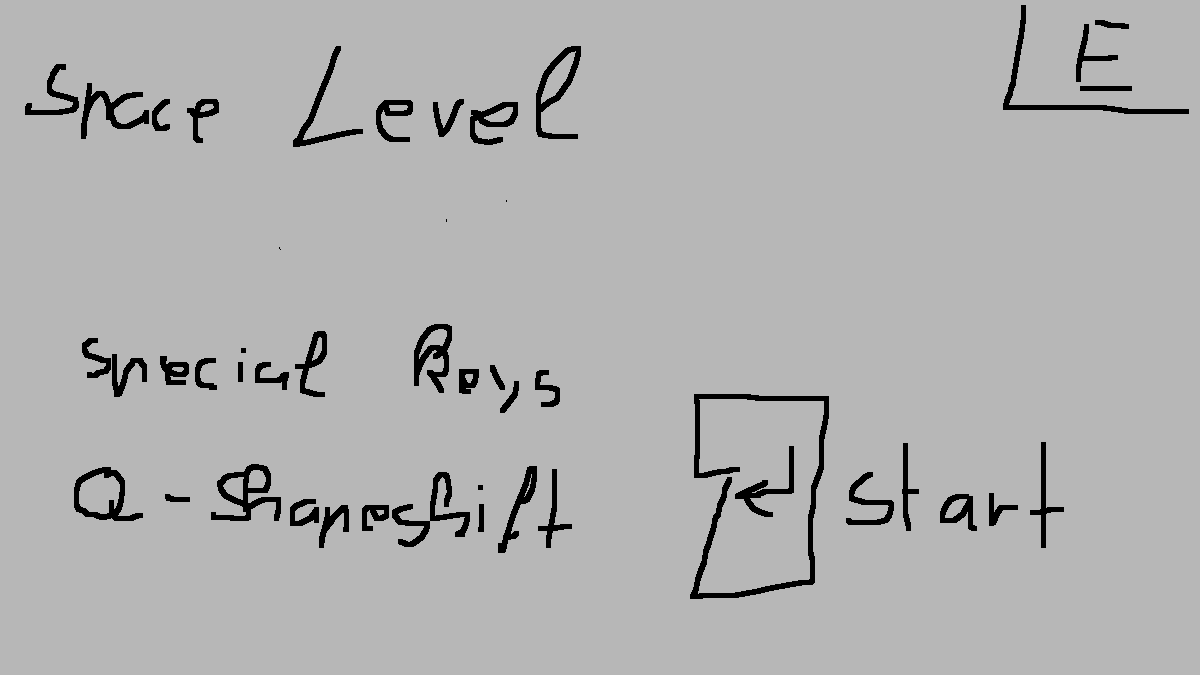 Space Level
E
Special Keys
Q - Shapeshift
Start